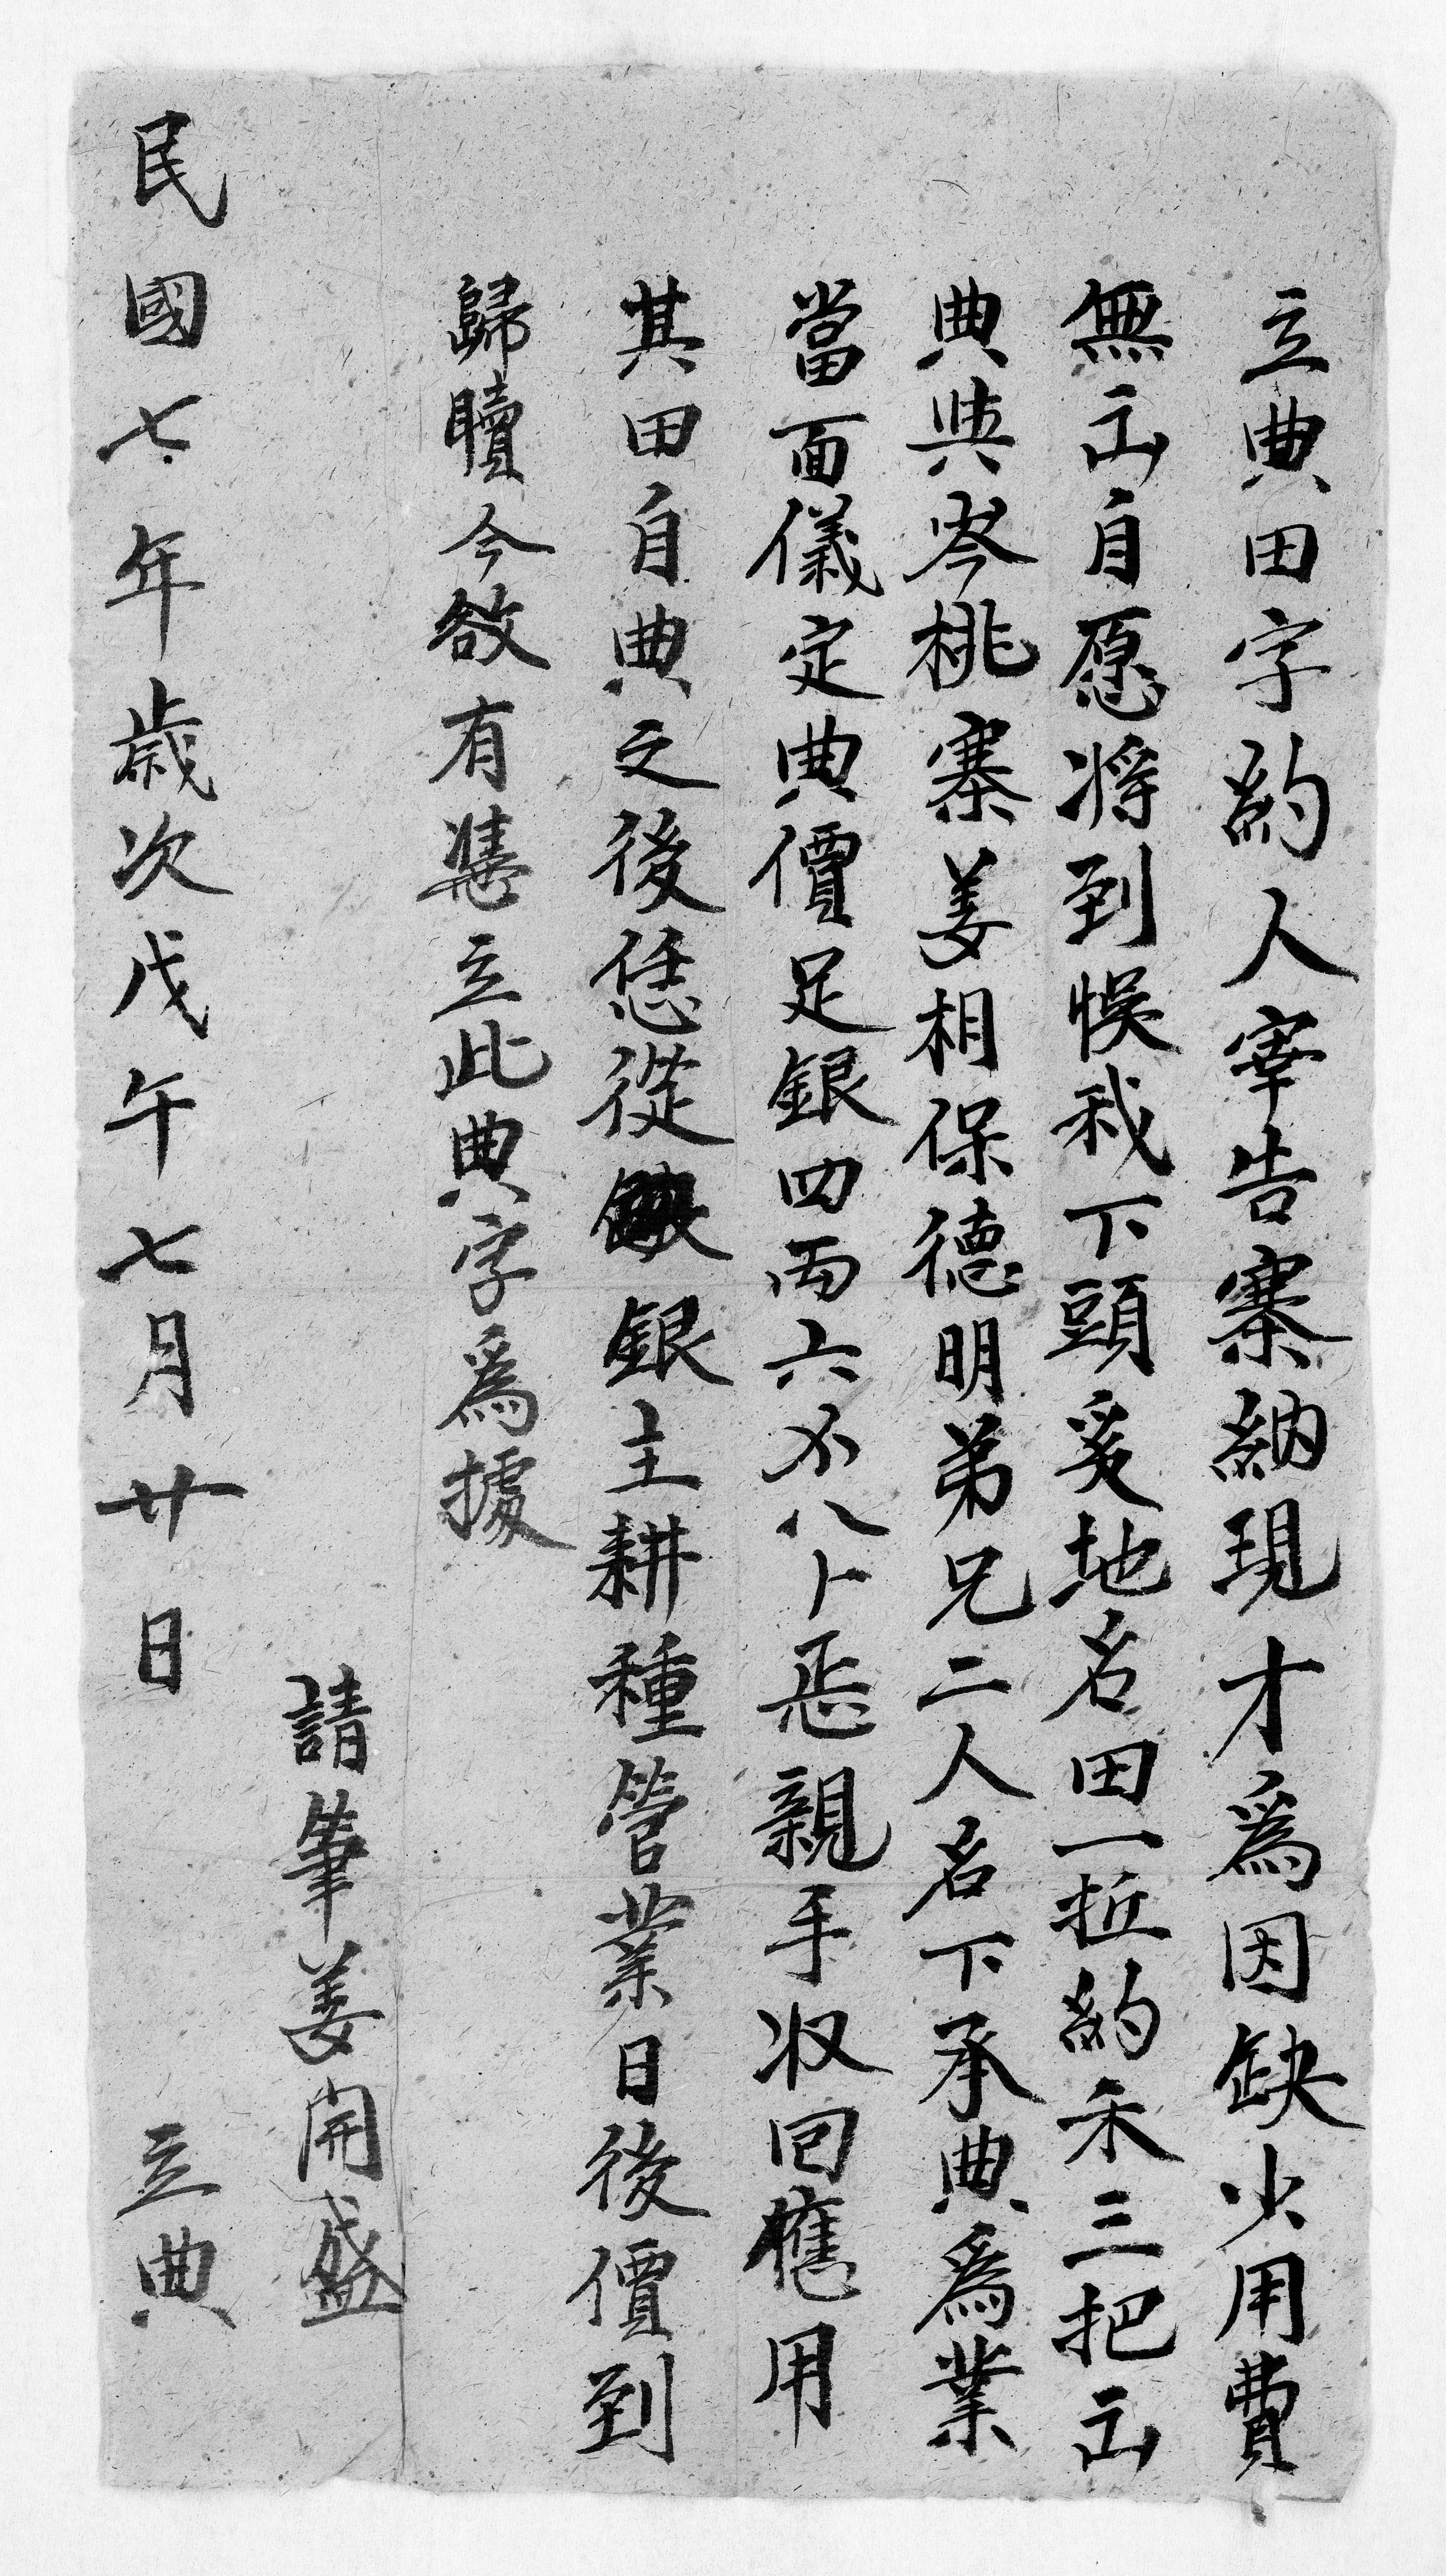 立典田字約人宰告寨納現才爲因缺少用費
無出自愿将到悮我下頭爰地名田一坵約禾三把出
典與岑桃寨姜相保德明弟兄二人名下承典爲業
當面儀定典價足銀四両六不八卜恶親手收回應用
其田自典之後恁從銀主耕種管業日後價到
歸贖今欲有慿立此典字爲據
請筆姜開盛
民國七年歲次戊午七月廿日 立典